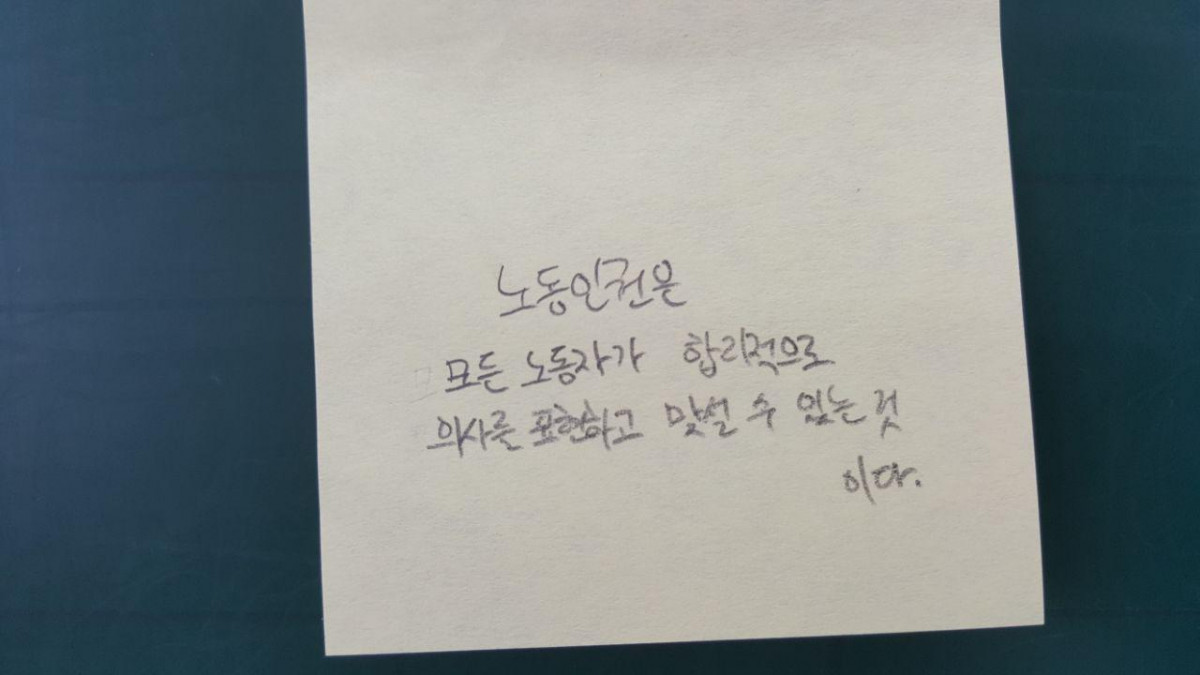 노동인권은
모든 노동자가 합리적으로
의사를 표현하고 맞설 수 있는 것
이다.